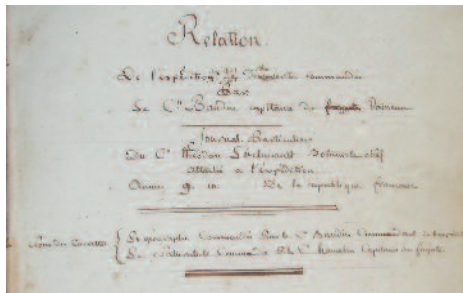 Relation
De l'expédition commandée
Par
Le Cⁿ Baudin capitaine de vaisseau
Journal Particulier
Du Cⁿ Théodore Leschenault Botaniste chef
attaché a l'expédition
Année 9. 10. De la république française
Le géographe Commandée Par le Cⁿ Baudin Commandant
Le naturaliste Commandé P. le Cⁿ Hamelin Capitaine de frégate